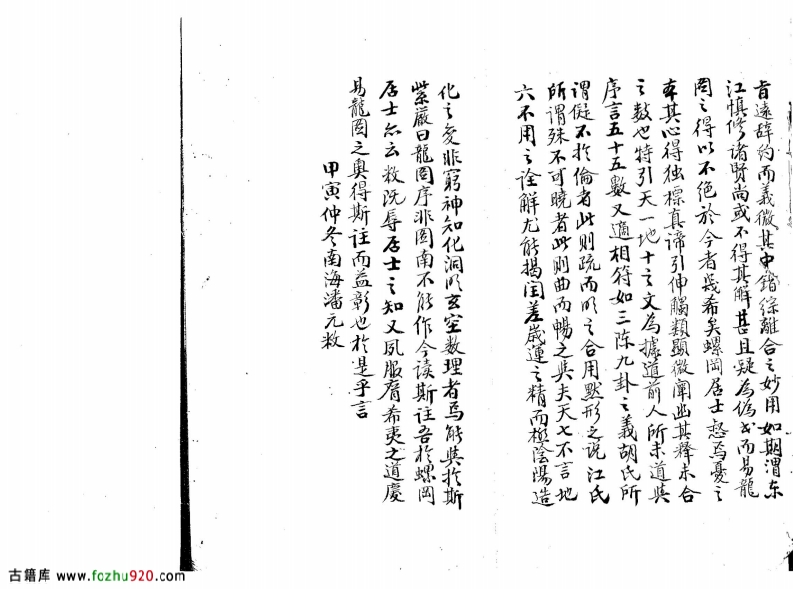 旨遠辞約而義微其中錯綜離合之妙用如胡渭東
江慎修諸賢尚或不得其解甚且疑為偽書而易龍
圖之得以不絕於今者幾希矣螺岡居士惄焉憂之
本其心得独標真諦引伸觸類顯微闡幽其釋未合
之数也特引天一地十之文為據道前人所未道與
序言五十五數又適相符如三陈九卦之義胡氏所
謂儗不於倫者此則疏而明之合用默形之说江氏
所謂殊不可曉者此則曲而暢之與夫天七不言地
六不用之诠解尤能揭闰差歲運之精而極陰陽造
化之変非窮神知化洞明玄空数理者烏能與於斯
紫巌曰龍圖序非圖南不能作今读斯註吾於螺岡
居士亦云敉既辱居士之知又夙服膺希夷之道慶
易龍圖之奧得斯註而益彰也於是乎言
甲寅仲冬南海潘元敉
古籍库 www.fozhu920.com